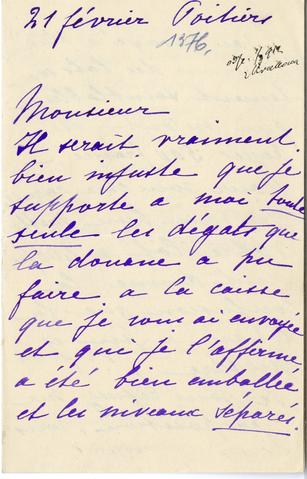 21 février Poitiers
1376.
Monsieur
Il serait vraiment
bien injuste que je
supporte a moi toute
seule les dégats que
la douane a pu
faire a la caisse
que je vous ai envoyée
et qui je l'affirme
a été bien emballée
et les niveaux séparés.